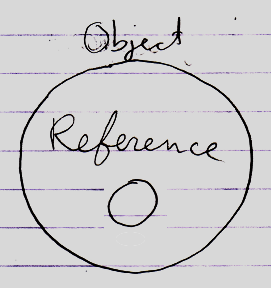 Object
Reference